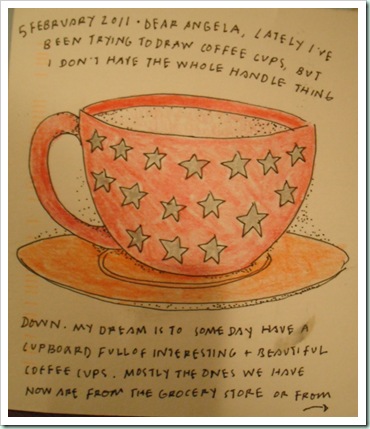 5 FEBRUARY 2011 • DEAR ANGELA, LATELY I'VE
BEEN TRYING TO DRAW COFFEE CUPS, BUT
I DON'T HAVE THE WHOLE HANDLE THING
DOWN. MY DREAM IS TO SOME DAY HAVE A
CUPBOARD FULL OF INTERESTING + BEAUTIFUL
COFFEE CUPS. MOSTLY THE ONES WE HAVE
NOW ARE FROM THE GROCERY STORE OR FROM
→